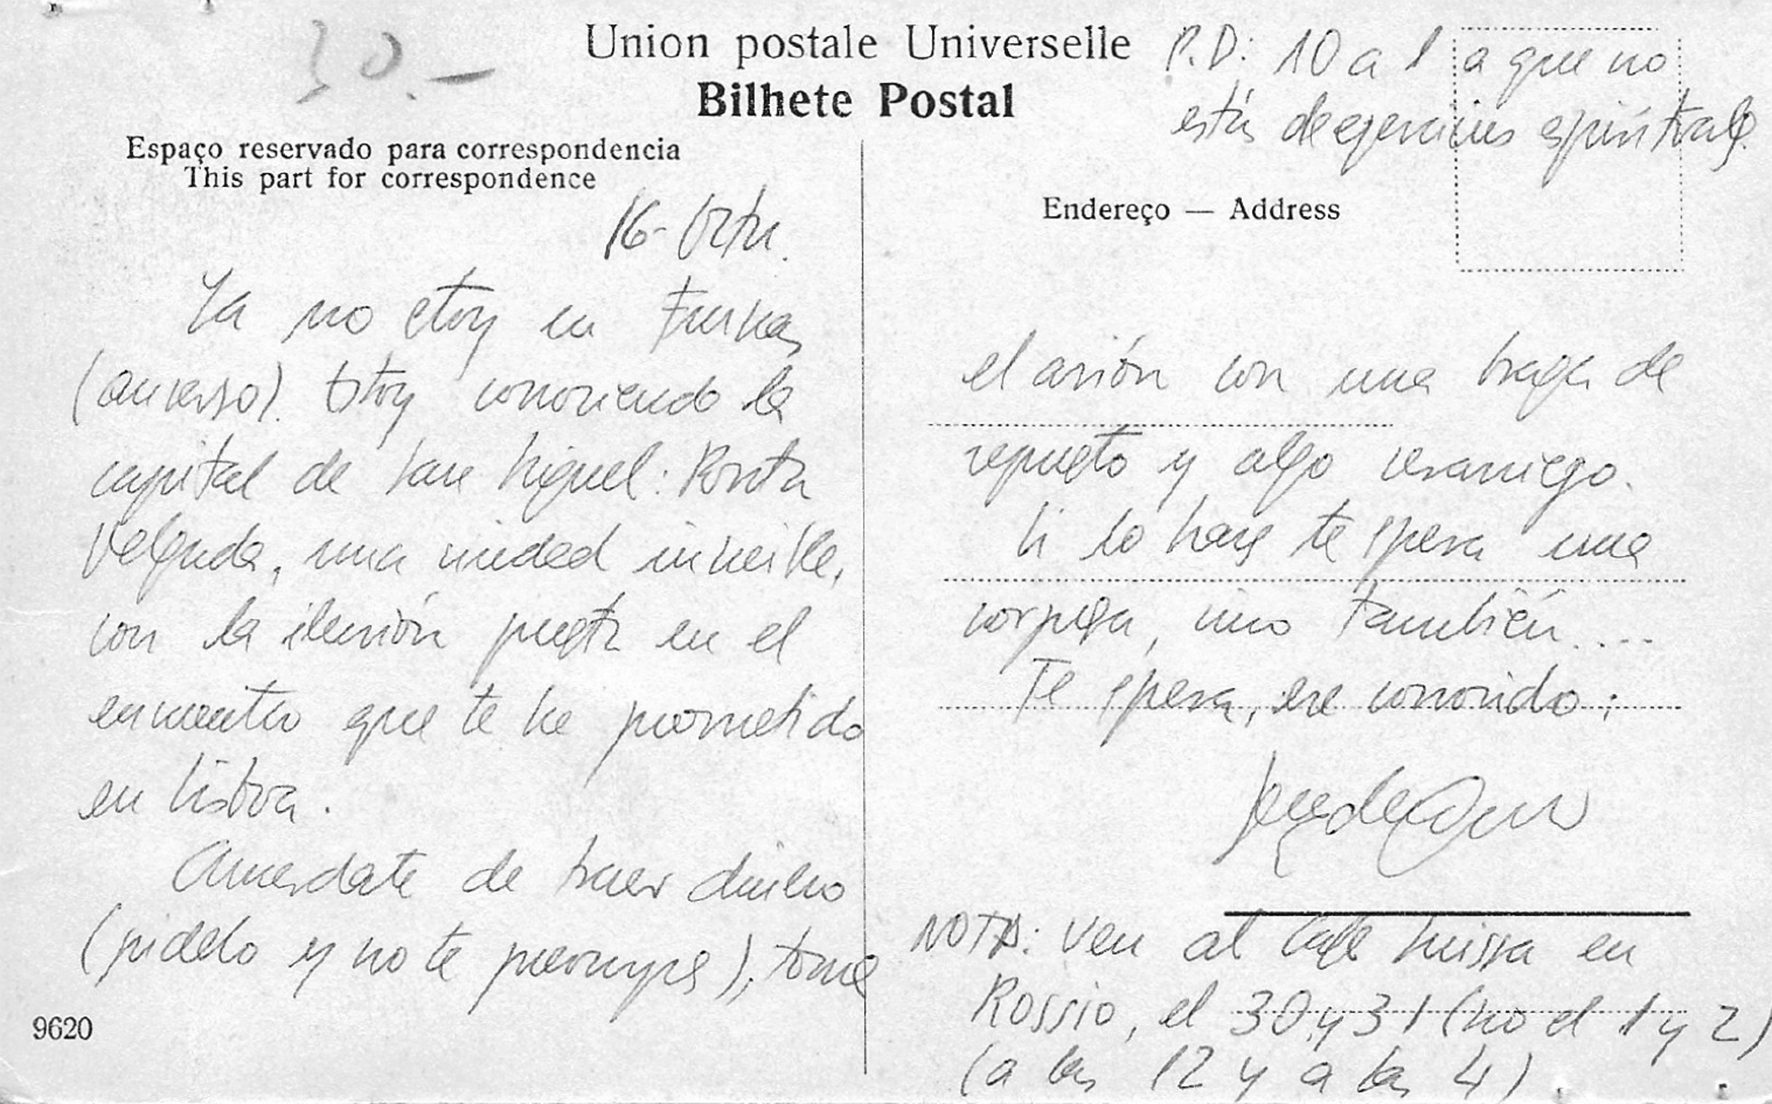 30.-
Union postale Universelle
Bilhete Postal
Espaço reservado para correspondencia
This part for correspondence
16-Octu.
Ya no estoy en Furnas
(anverso). Estoy conociendo la
capital de San Miguel: Ponta
Delgada, una ciudad increible,
con la ilusión puesta en el
encuentro que te he prometido
en Lisboa.
Acuerdate de traer dinero
(pidelo y no te preocupes); toma
9620
P.D: 10 a 1 a que no
estás de ejercicios espirituales.
Endereço — Address
el avión con una braga de
repuesto y algo veraniego.
Si lo haces te espera una
sorpresa, sino también....
Te espera, ese conocido:
NOTA: Ven al Café Suissa en
Rossio, el 30 y 31 (no el 1 y 2)
(a las 12 y a las 4).